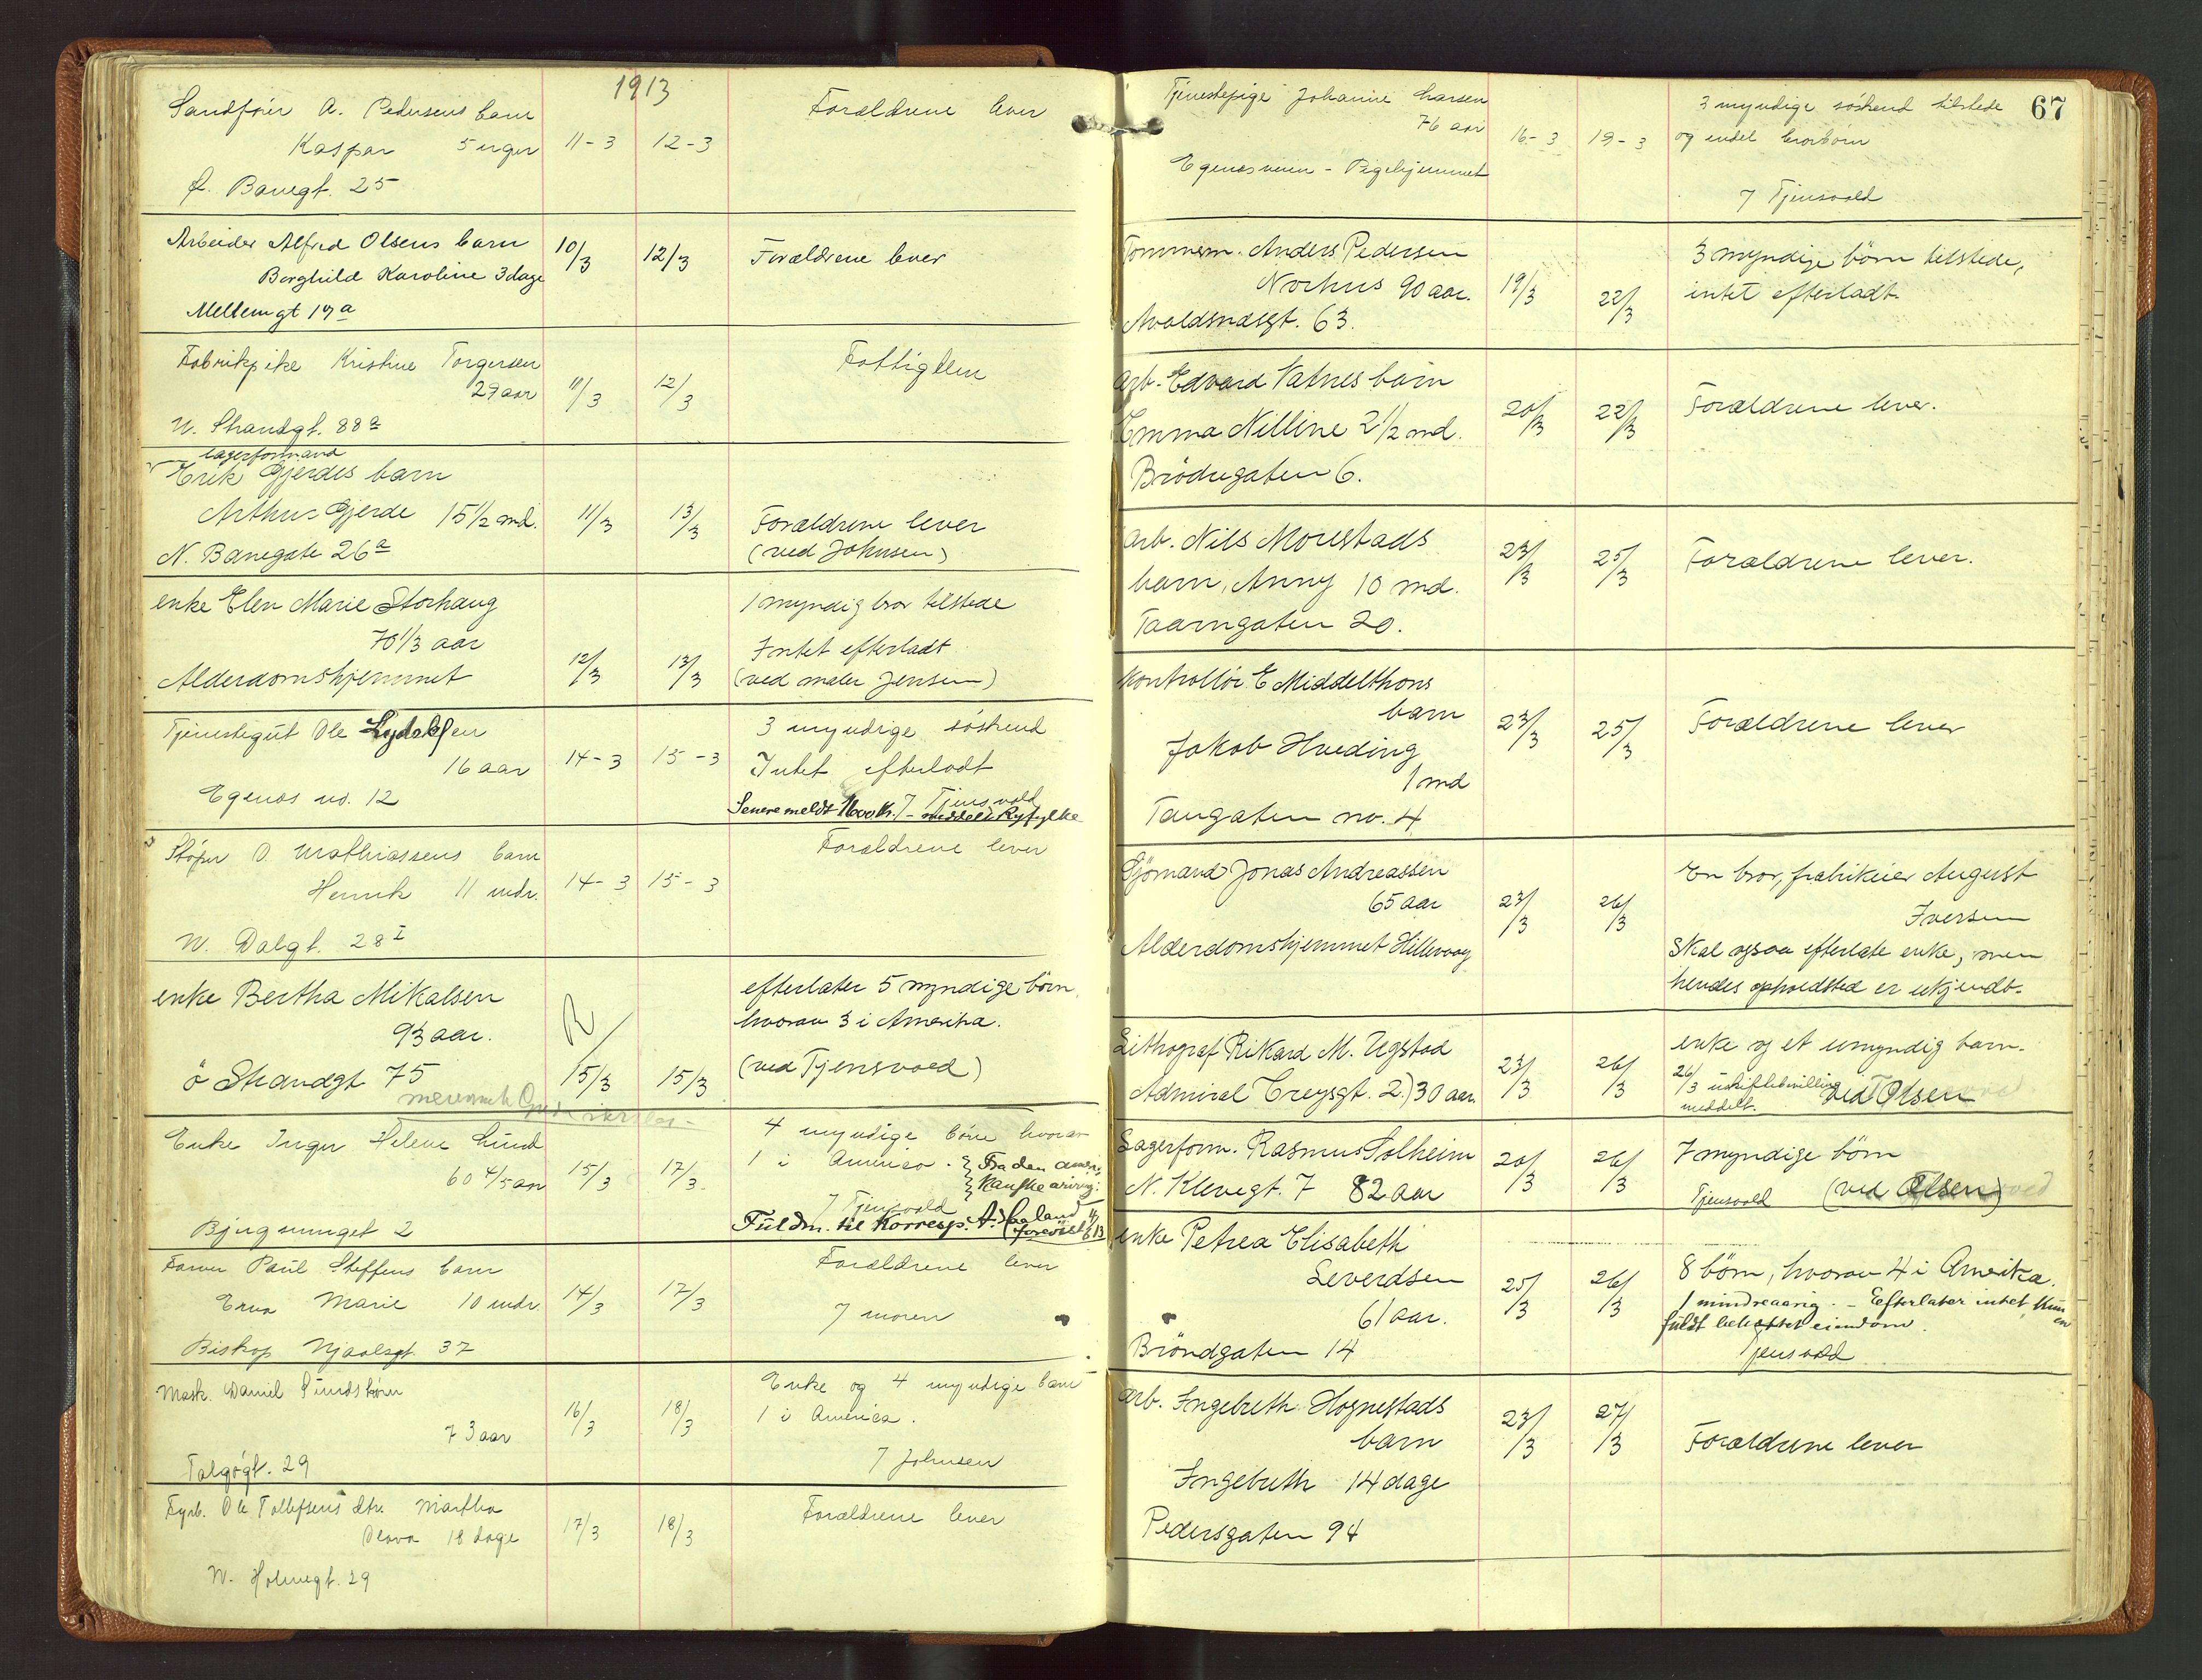 1913
Sandkjörer A. Pedersens barn
Kaspar 5 uger 11-3 12-3 Forældrene lever
Banegt. 25
Arbeider Alfred Olsens barn
Borghild Karoline 3 dage 10/3 12/3 Forældrene lever
Mellemgt 17a
Fabrikpike Kristine Torgersen
29 aar 11/3 12/3 Fattiglem
N. Strandgt. 88a
lagerformand
Erik Gjerdes barn
Arthur Gjerde 15 1/2 md. 11/3 13/3 Forældrene lever
N. Banegate 26a (ved Johnsen)
enke Elen Marie Storhaug 1 myndig bror tilstede
70 1/3 aar Intet efterladt
Alderdomshjemmet 12/3 13/3 (ved maler Jensen)
Tjenestegut Ole 3 myndige söskend
16 aar 14-3 15-3 Intet efterladt
Egenes no. 12 / Tjensvold
Senere meldt 1600 Kr. - meddelt Ryfylke
Stöper O. Mathiassens barn Forældrene lever
Henrik 11 mdr. 14-3 15-3
N. Dalgt. 28 I
enke Bertha Mikalsen efterlater 5 myndige börn,
93 aar. hvorav 3 i Amerika.
ö Strandgt 75 15/3 15/3 (ved Tjensvold)
Enke Inger Helene Lund 4 myndige börn hvorav
60 4/5 aar 15/3 17/3 1 i America. Fra den ameri-
kanske arving:
/ Tjensvold
Bjergsmuget 2 Fuldm. til Korresp. A. Haaland
Farver Paul Steffens barn Forældrene lever
Erna Marie 10 mdr. 14/3 17/3 / moren
Biskop Njaalsgt. 37
Mask. Daniel Sundsbören Enke og 4 myndige barn
73 aar 16/3 18/3 1 i America.
Talgögt. 29 / Johnsen
Fyrb. Ole Tollefsens dtr. Martha Forældrene lever
Olava 18 dage 17/3 18/3
N. Holmegt. 29
67
Tjenestepige Johanne Larsen 3 myndige söskend tilstede
76 aar 16-3 19-3 og endel brorbarn
Egenesveien - Pigehjemmet
/ Tjensvold
Tömmerm. Anders Pedersen 3 myndige börn tilstede,
Norhus 90 aar. 19/3 22/3 intet efterladt.
Avaldsnesgt. 63.
Arb. Edvard Vatnes barn
Emma Nilline 2 1/2 md. 20/3 22/3 Forældrene lever.
Brödregaten 6.
Arb. Nils Morestads
barn, Anny 10 md. 23/3 25/3 Forældrene lever.
Taarngaten 20.
Kontrollör E Middelthons
barn 23/3 25/3 Forældrene lever
Jakob Hveding
1 md
Taugaten no. 4
Sjömand Jonas Andreassen En bror, fabrikeier August
65 aar 23/3 26/3 Iversen
Alderdomshjemmet Hillevaag Skal ogsaa efterlate enke, men
hendes opholdsted er ukjendt.
Lithograf Rikard M. Ugstad enke og et umyndig barn.
Admiral Creysgt. 2.) 30 aar. 23/3 26/3 26/3 uskiftebevilling
meddelt. ved Olsen
Lagerform. Rasmus Solheim 20/3 26/3 7 myndige börn
N. Klevegt. 7 82 aar Tjensvold (ved Olsen)
enke Petrea Elisabeth
Severdsen 25/3 26/3 8 börn, hvorav 4 i Amerika.
61 aar. 1 mindreaarig. - Efterlater intet kun en
Bröndgaten 14 fuldt beheftet eiendom.
Tjensvold
Arb. Ingebreth Hognestads
barn 23/3 27/3 Forældrene lever
Ingebreth 14 dage
Pedersgaten 94